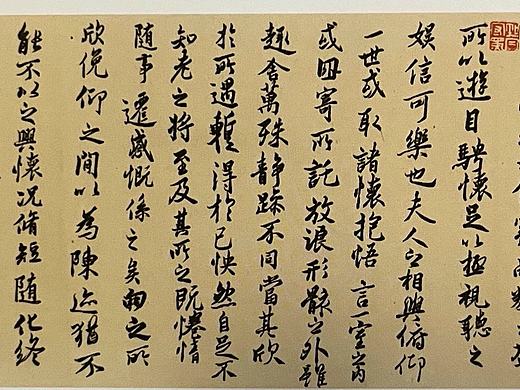 所以遊目騁懷足以極視聽之
娛信可樂也夫人之相與俯仰
一世或取諸懷抱悟言一室之內
或因寄所託放浪形骸之外雖
趣舍萬殊静躁不同當其欣
於所遇蹔得於己快然自足不
知老之將至及其所之既惓情
隨事遷感慨係之矣向之所
欣俛仰之間以為陳迹猶不
能不以之興懷况脩短随化終